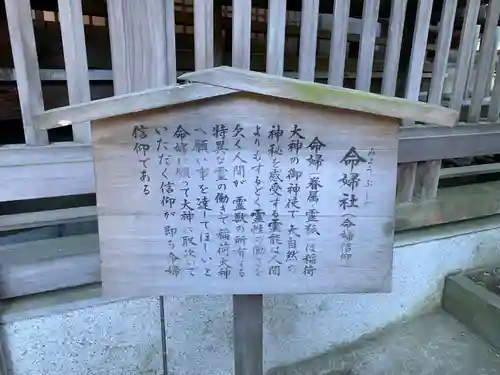 みょうぶしゃ
命婦社（命婦信仰）
命婦（眷属 霊獣）は稲荷
大神の御神使で大自然の
神秘を感受する霊獣は人間
よりもするどく霊性の働きを
欠く人間が 霊獣の所有する
特異な霊の働きで 稲荷大神
へ願い事を達してほしいと
命婦に願って大神に取次いで
いただく信仰が即ち命婦
信仰である